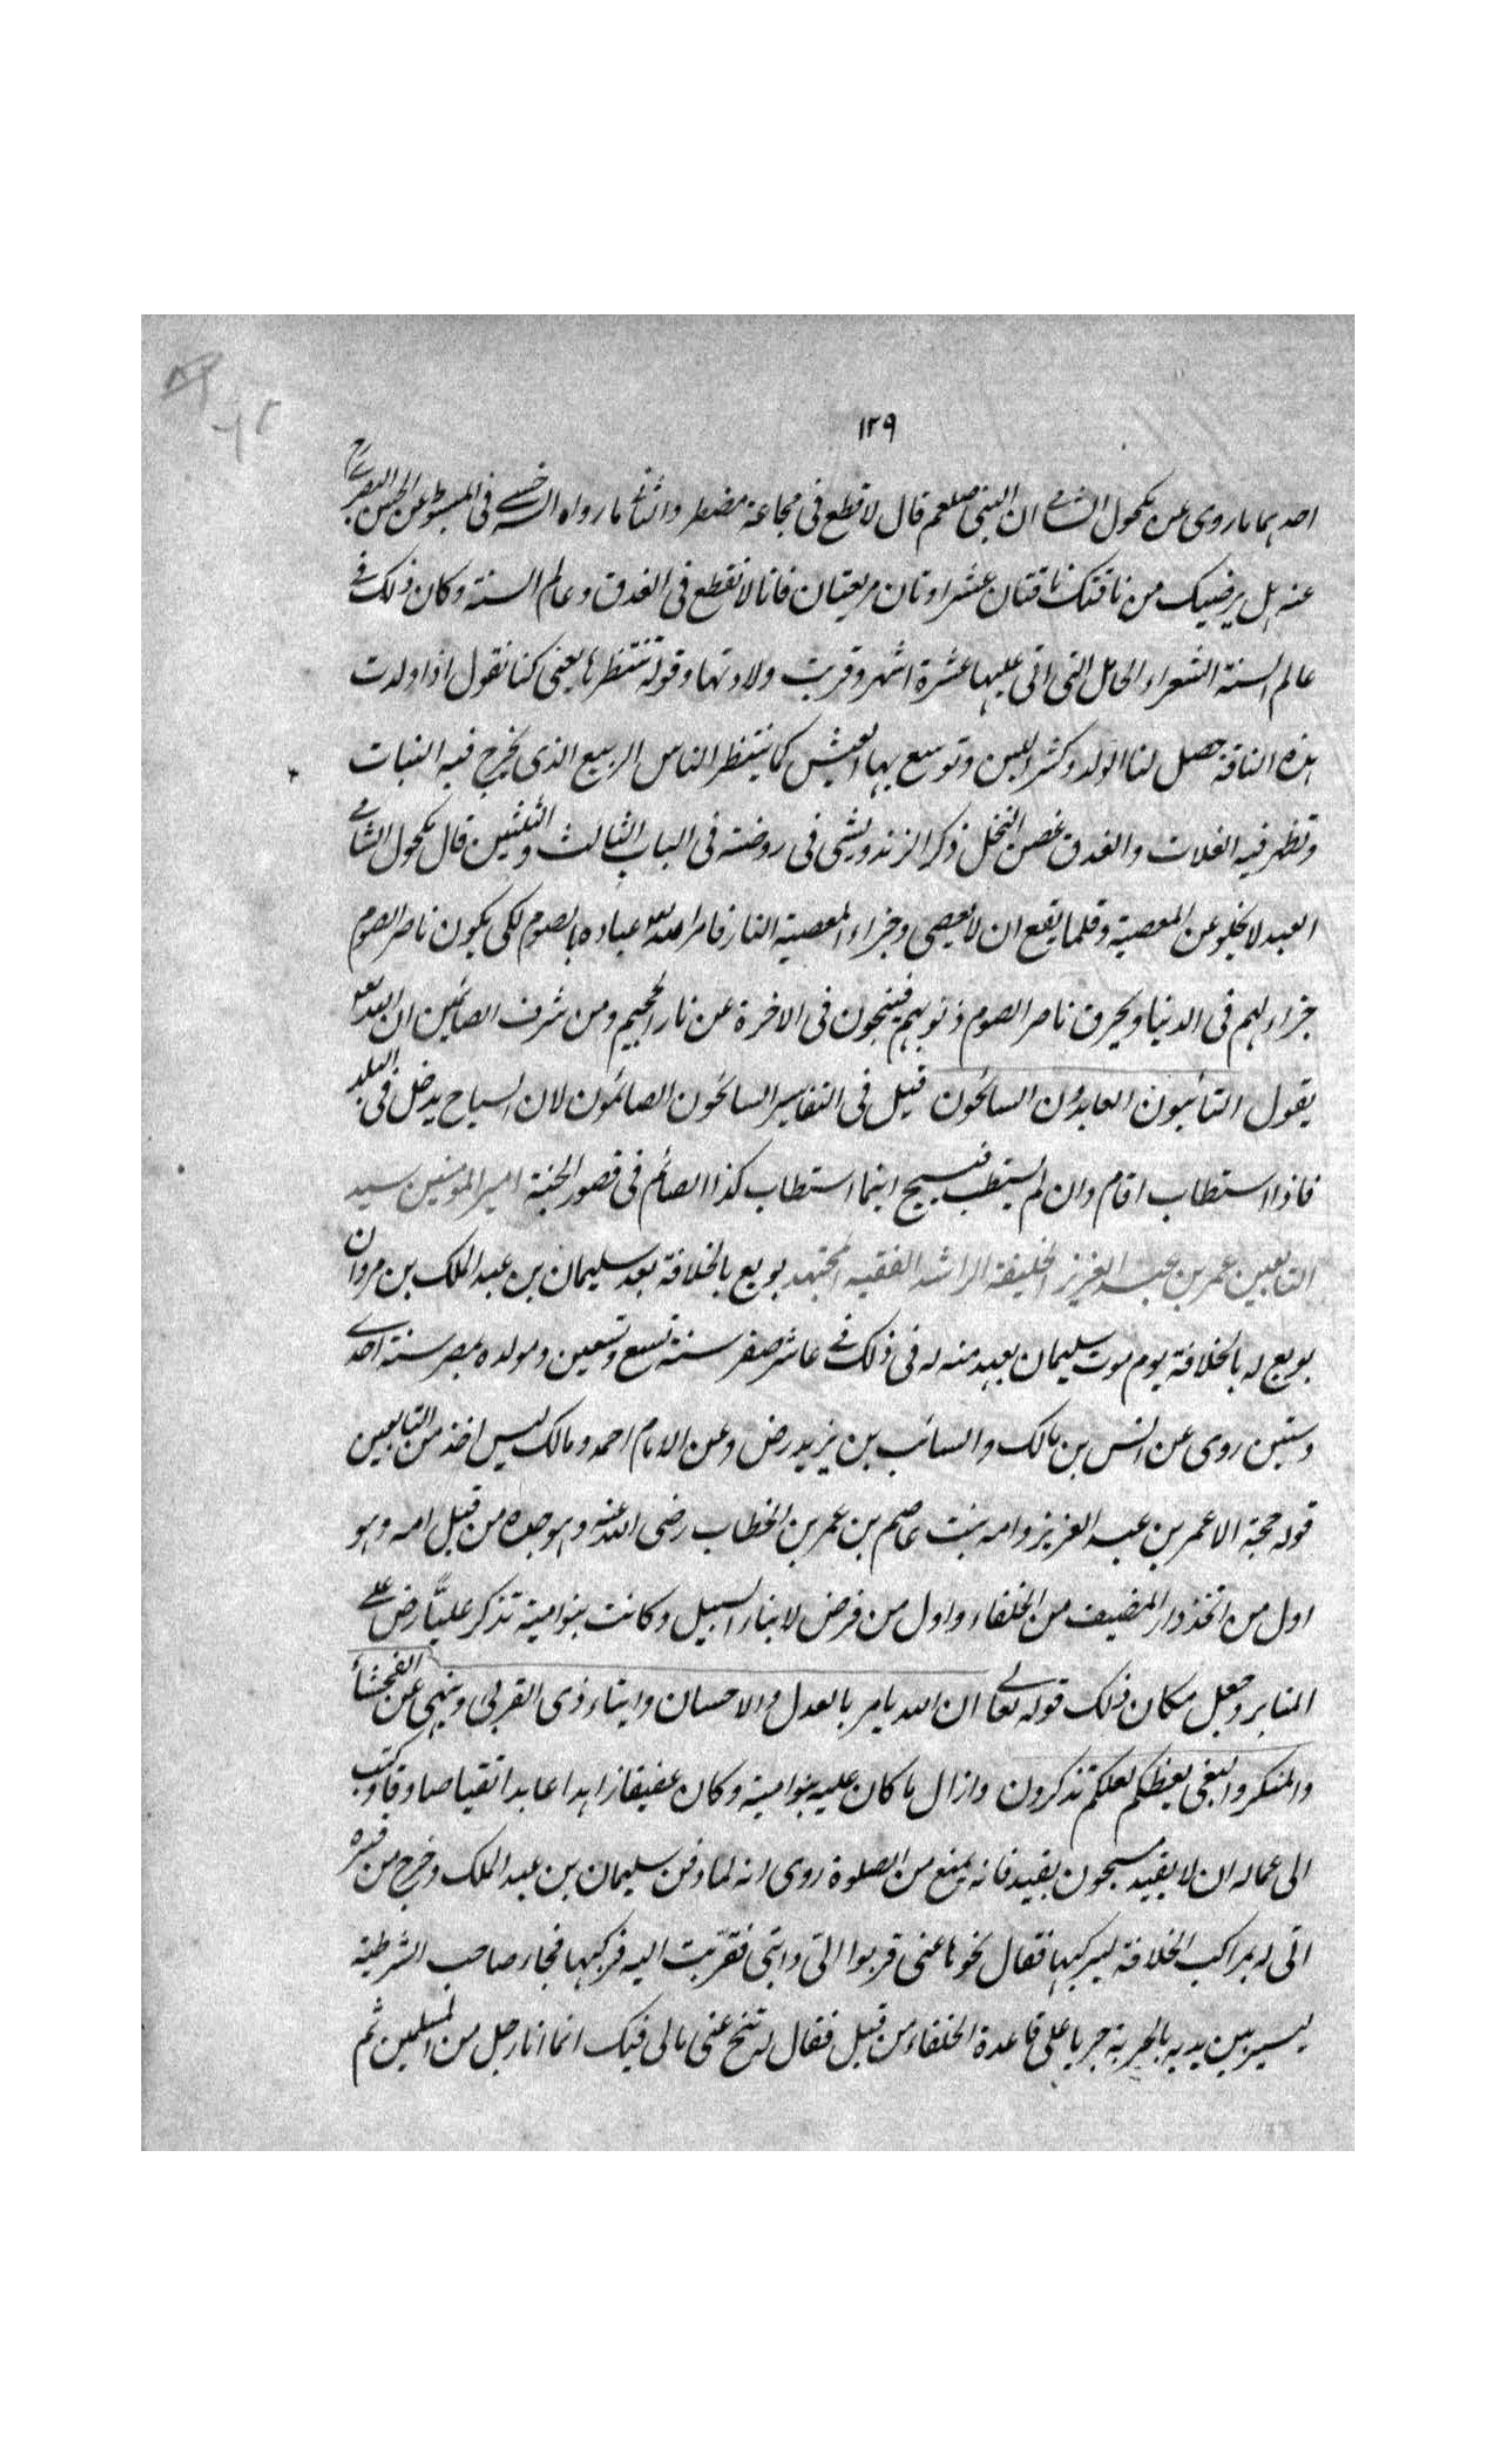 ١٢٩
احدهما ما روى عن مكحول الشامى ان النبى صلعم قال لا قطع فى مجاعة مضطر والثانى ما رواه السرخسى فى المبسوط عن الحسن البصرى رح
عنه هل يرضيك من ناقتك ناقتان عشراوتان مربعتان فانا لا نقطع فى الغدق وعام السنة وكان ذلك فى
عام السنة الشعراء الحامل التى اتى عليها عشرة اشهر وقربت ولادتها وقوله ننتظرها يعنى كنا نقول اذا ولدت
هذه الناقة حصل لنا الولد وكثر اللبن وتوسع بها العيش كما ينتظر الناس الربيع الذى يخرج فيه النبات
وتظهر فيه الغلات والغدق غصن النخل ذكر الزندويشى فى روضته فى الباب الثالث والثلثين قال مكحول الشامى
العبد لا يخلو عن المعصية وقلما يقع ان لا يعصى وجزاء المعصية النار فامر الله تعالى عباده بالصوم لكى يكون نار الصوم
جزاء لهم فى الدنيا ويحرق نار الصوم ذنوبهم فينجون فى الاخرة عن نار الجحيم ومن شرف الصائمين ان الله تعالى
يقول التائبون العابدون السائحون قيل فى التفاسير السائحون الصائمون لان السياح يدخل فى البلد
فاذا استطاب اقام وان لم يستطب فيسيح اينما استطاب كذا الصائم فى قصور الجنة امير المومنين سيد
التابعين عمر بن عبد العزيز الخليفة الراشد الفقيه المجتهد بويع بالخلافة بعد سليمان بن عبد الملك بن مروان
بويع له بالخلافة يوم موت سليمان بعهد منه له فى ذلك فى عاشر صفر سنة تسع وتسعين ومولده بمصر سنة احدى
وستين روى عن انس بن مالك والسائب بن يزيد رض وعن الامام احمد ومالك ليس احد من التابعين
قوله حجة الا عمر بن عبد العزيز وامه بنت عاصم بن عمر بن الخطاب رضى الله عنه وهو جده من قبل امه وهو
اول من اتخذ دار المضيف من الخلفاء واول من فرض لابناء السبيل وكانت بنو امية تذكر عليّاً رض على
المنابر وجعل مكان ذلك قوله تعالى ان الله يامر بالعدل والاحسان وايتاء ذى القربى وينهى عن الفحشاء
والمنكر والبغى يعظكم لعلكم تذكرون وازال ما كان عليه بنو امية وكان عفيفا زاهدا عابدا تقيا صادقا وكتب
الى عماله ان لا يقيد مسجون بقيد فانه يمنع من الصلوة روى انه لما دفن سليمان بن عبد الملك وخرج من قبره
اتى له بمراكب الخلافة ليركبها فقال نحوها عنى قربوا الىّ دابتى فقرّبت اليه فركبها فجاء صاحب الشرطية
يسير بين يديه بالحربة جريا على قاعدة الخلفاء من قبل فقال له تنح عنى مالى فيك انما انا رجل من المسلمين ثم